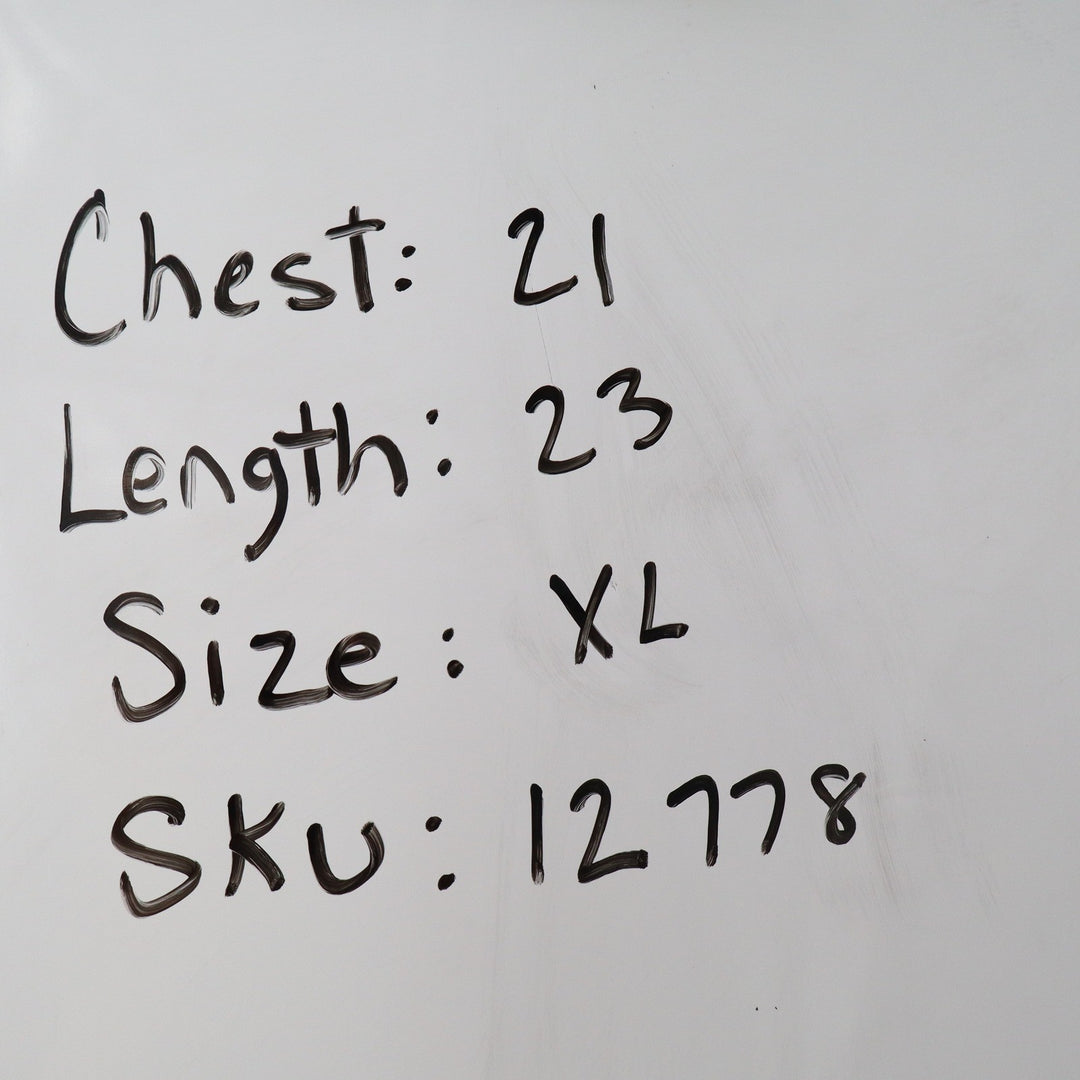 Chest: 21
Length: 23
Size: XL
SKU: 12778